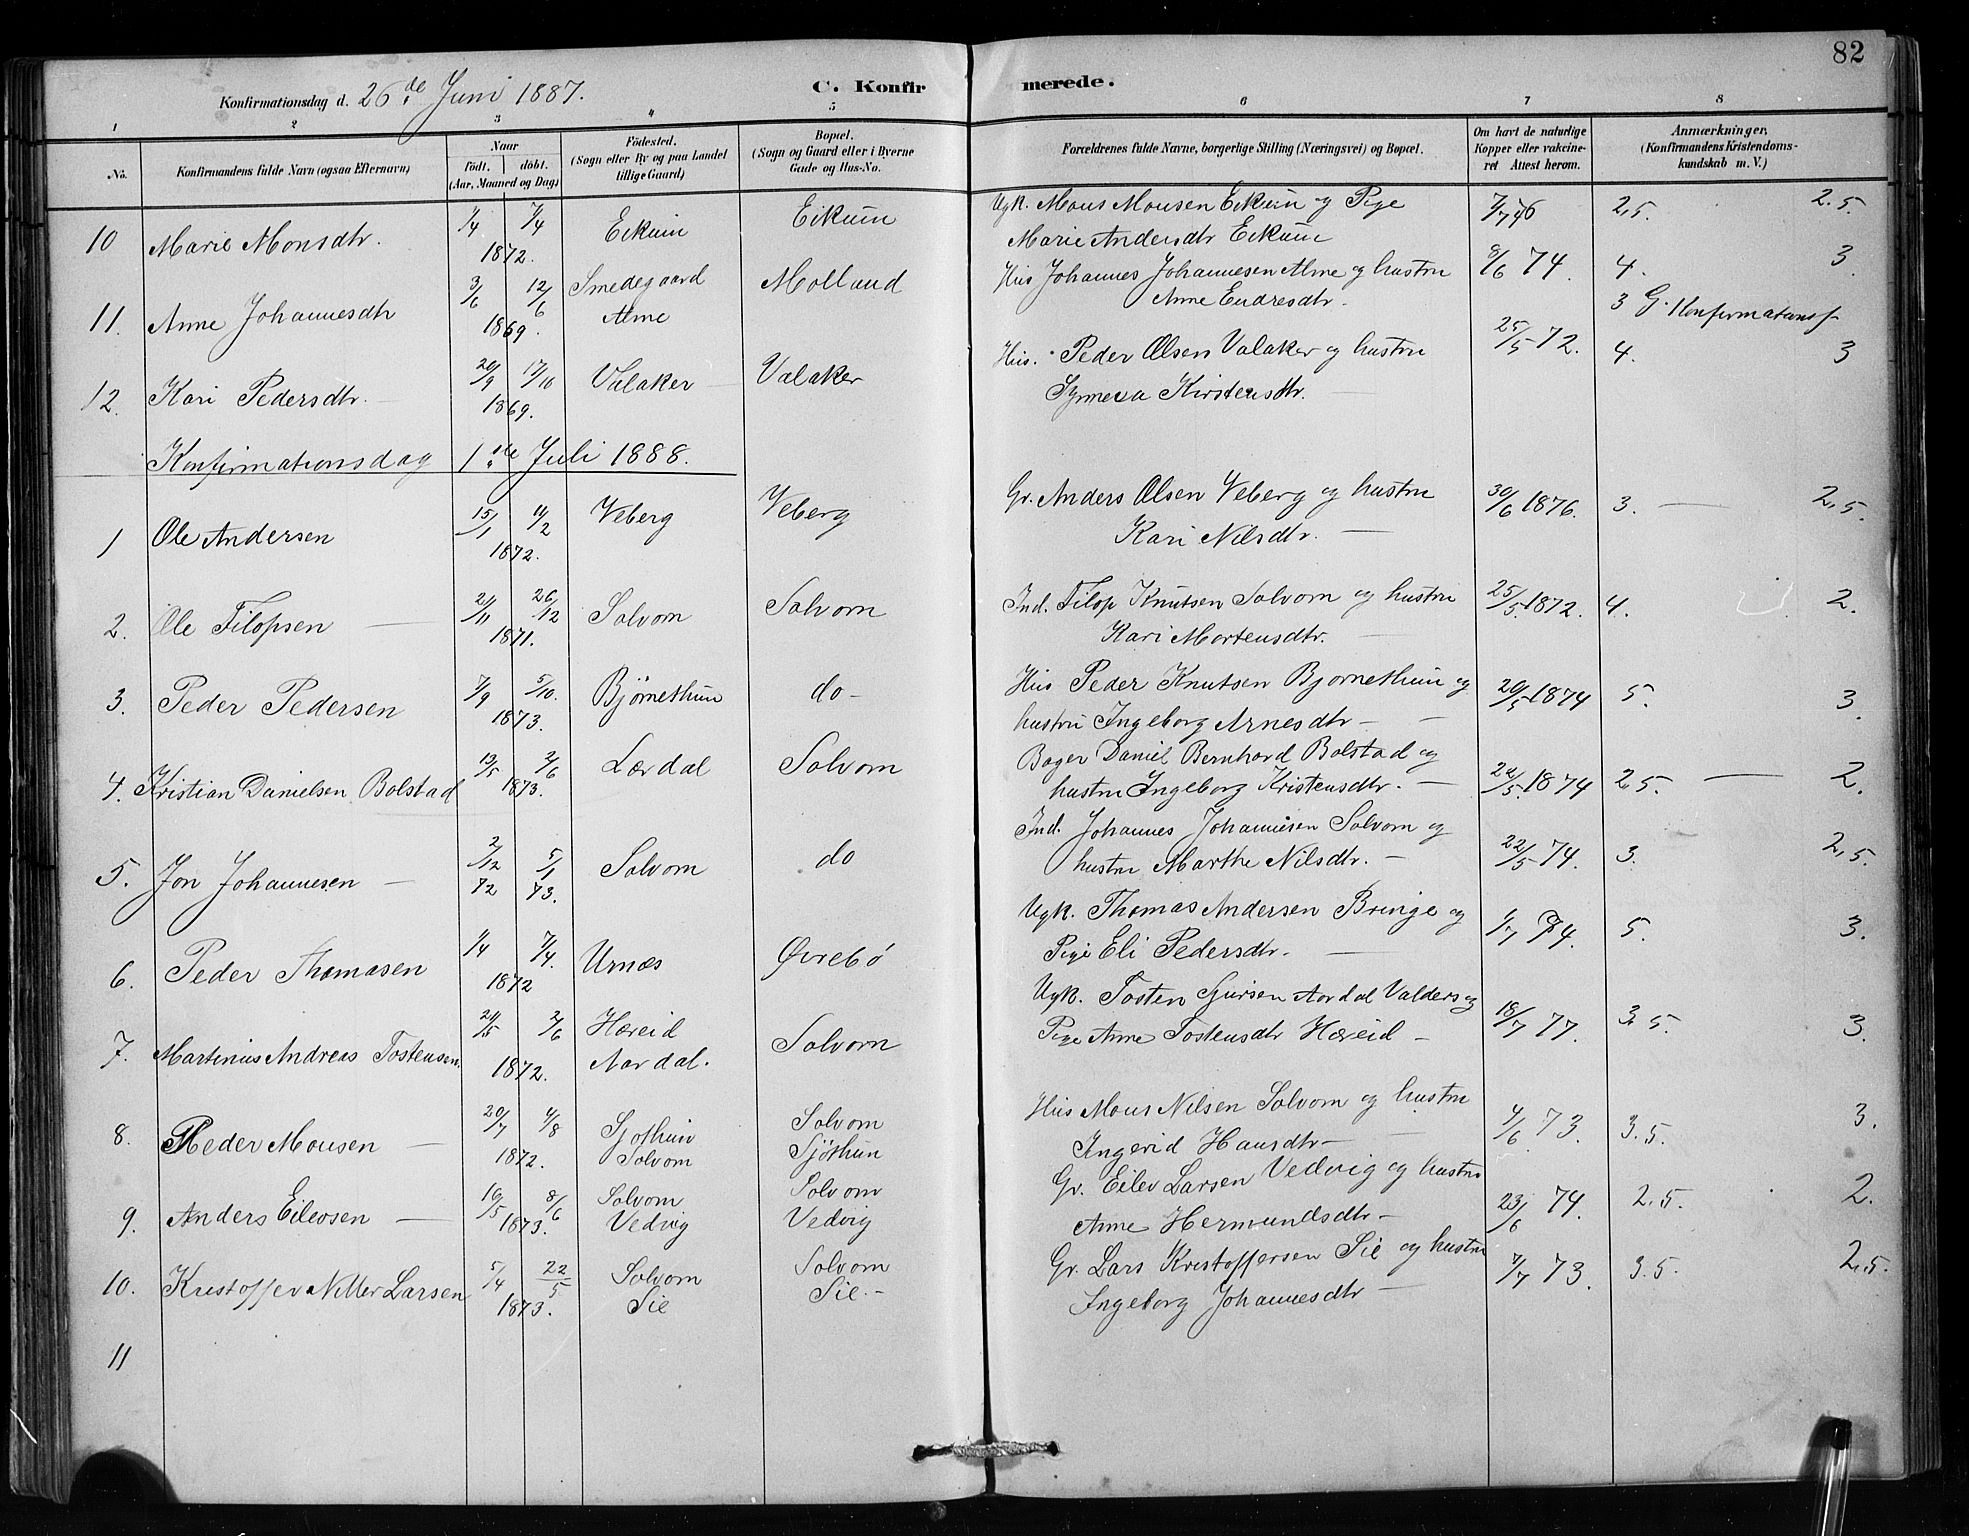 82
Konfirmationsdag d. 26de Juni 1887.
C. Konfirmerede.
1 2 3 4 5 6 7 8
No.
Konfirmandens fulde Navn (ogsaa Efternavn)
Naar
Födt. döbt.
(Aar, Maaned og Dag)
Födested.
(Sogn eller By og paa Landet
tillige Gaard)
Bopæl.
(Sogn og Gaard eller i Byerne
Gade og Hus-No.
Forældrenes fulde Navne, borgerlige Stilling (Næringsvei) og Bopæl.
Om havt de naturlige
Kopper eller vakcine-
ret Attest herom.
Anmærkninger,
(Konfirmandens Kristendoms-
kundskab m. V.)
10 Marie Monsdtr. 1/4 7/4 1872. Eikum Eikum Ugk. Mons Monsen Eikum og Pige
Marie Andersdtr Eikum 2,5. 2.5.
11. Anne Johannesdtr 3/6 12/6 1869. Smedegaard
Alme Molland Hus Johannes Johannesen Alme og hustru
Anne Endresdtr. 8/6 74. 4. 3.
3 G. Konfirmationsf.
12. Kari Pedersdtr. 20/9 17/10 1869. Valaker Valaker Hus. Peder Olsen Valaker og hustru
Synneva Kirstensdtr. 25/5 72. 4. 3
Konfirmationsdag 1ste Juli 1888.
1 Ole Andersen 15/1 11/2 1872. Veberg Veberg Gr. Anders Olsen Veberg og hustru
Kari Nilsdtr. 30/6 1876. 3. 2,5.
2. Ole Filopsen 21/11 26/12 1871. Solvorn Solvorn Ind. Filop Knutsen Solvorn og hustru
Kari Mortensdtr. 25/5 1872. 4. 2.
3. Peder Pedersen 7/9 5/10. 1873. Bjørnethun do Hus Peder Knutsen Bjørnethun og
hustru Ingeborg Arnesdtr 20/5 1874 5. 3.
4. Kristian Danielsen Bolstad 13/5 2/6 1873. Lærdal Solvorn Bager Daniel Bernhard Bolstad og
hustru Ingeborg Kristensdtr. 22/5. 1874 2,5. 2.
5. Jon Johannesen 2/12 72 5/1 73. Solvorn do Ind. Johannes Johannesen Solvorn og
hustru Marthe Nilsdtr. 22/5 74. 3. 2,5.
6. Peder Thomasen 1/4 7/4. 1872 Urnæs Øvrebø Ugk. Thomas Andersen Bringe og
Pige Eli Pedersdtr. 1/7 74. 5. 3.
7. Martinius Andreas Tostensen. 20/5 2/6 1872. Hæreid
Aardal. Solvorn Ugk. Tosten Sjursen Aardal Valders og
Pige Anne Tostensdtr Hæreid 18/7 77. 3.5. 3.
8. Peder Monsen 20/7 4/8 1872. Sjøthun
Solvorn Solvorn
Sjøthun Hus Mons Nilsen Solvorn og hustru
Ingerid Hansdtr 4/6 73. 3.5. 3.
9. Anders Eilevsen 10/5 8/6 1873. Solvorn
Vedvig Solvorn
Vedvig Gr. Eilev Larsen Vedvig og hustru
Anne Hermundsdtr 23/6 74. 2.5. 2.
10. Kristoffer Nitter Larsen 5/4 22/5 1873. Solvorn
Sie Solvorn
Sie. Gr. Lars Kristoffersen Sie og hustru
Ingeborg Johannesdtr 7/7 73. 3.5. 2.5.
11